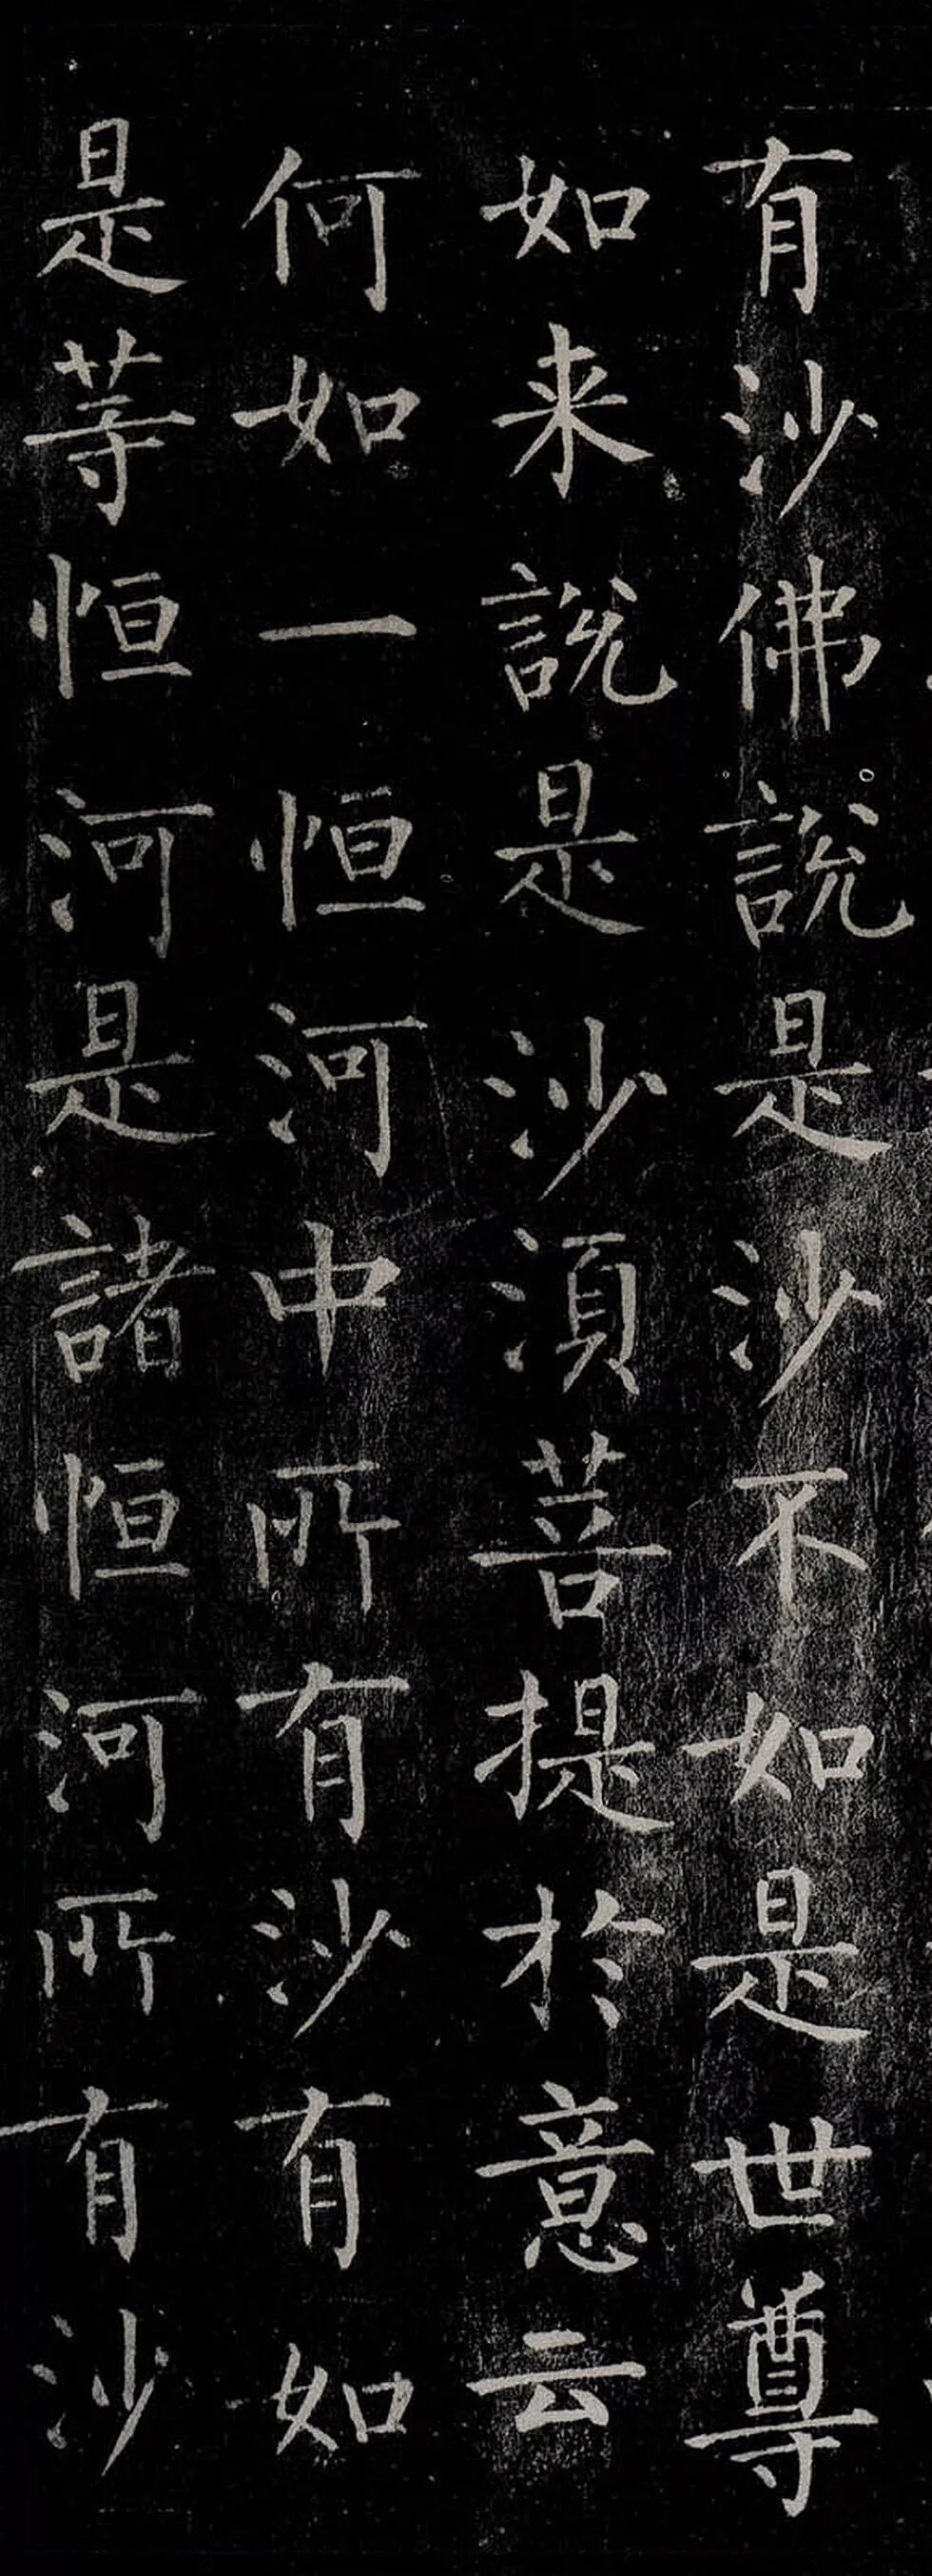 有沙佛說是沙不如是世尊
如来說是沙湏菩提於意云
何如一恒河中所有沙有如
是等恒河是諸恒河所有沙